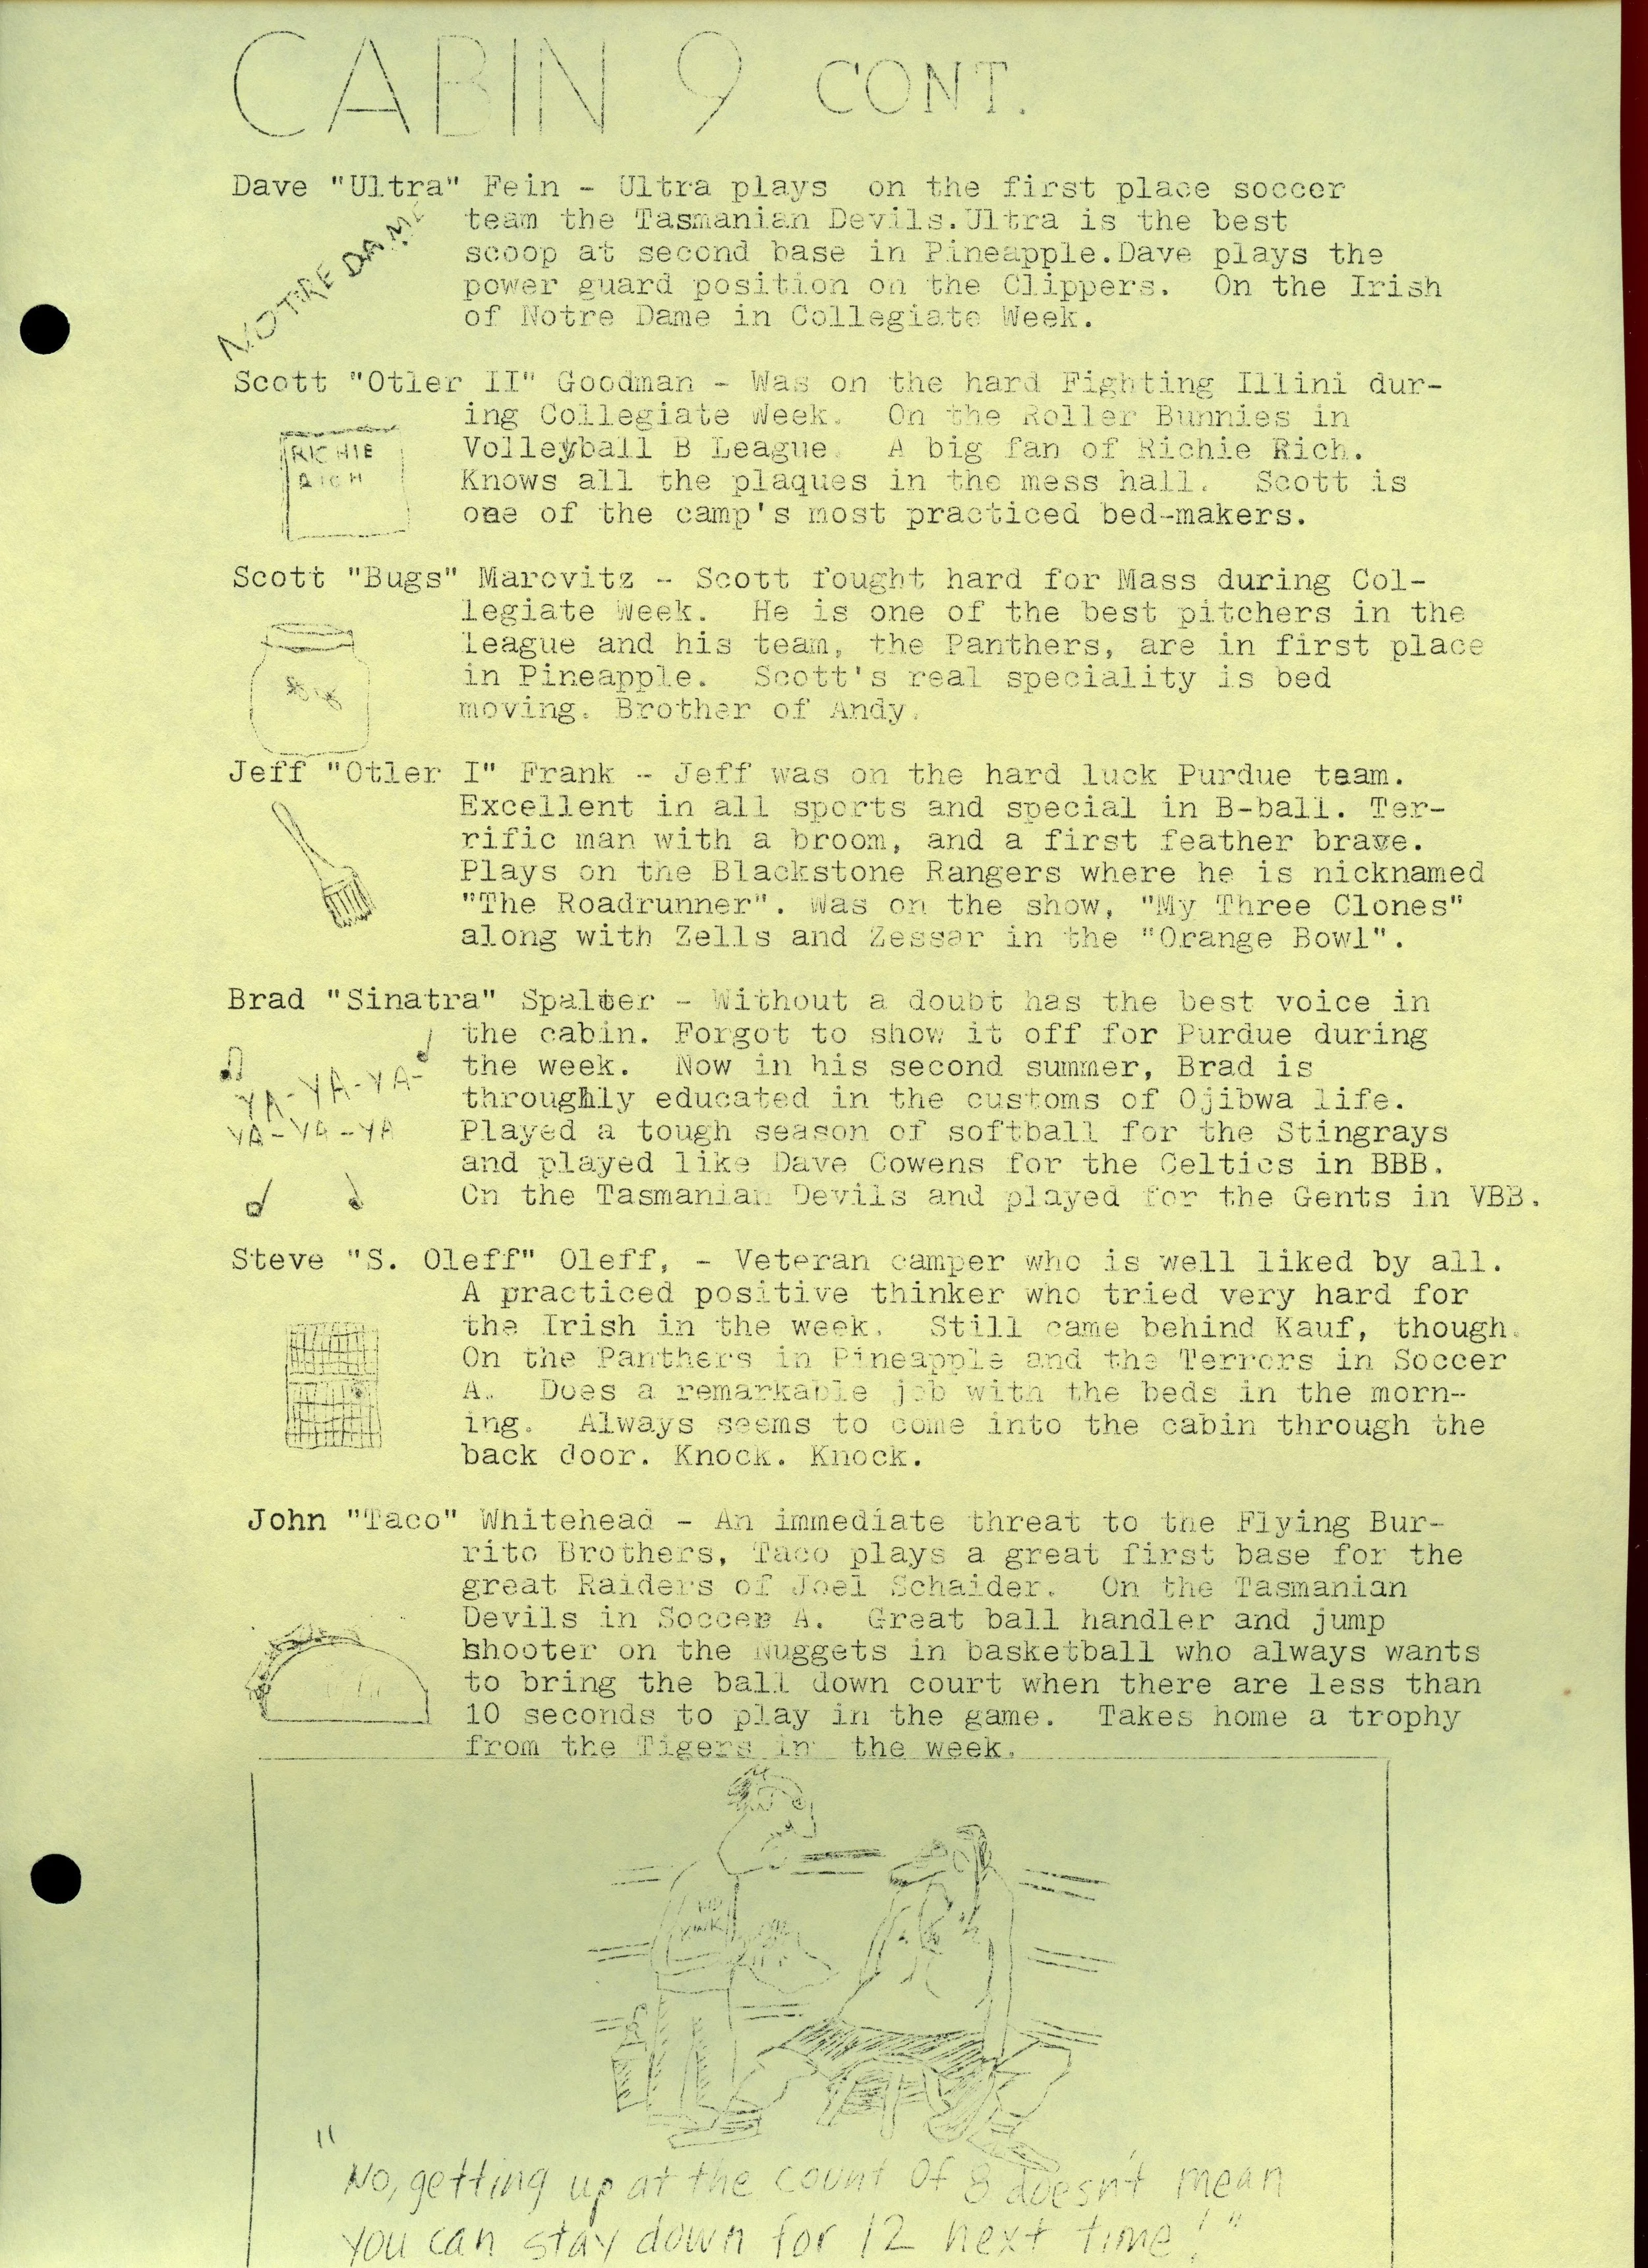 CABIN 9 CONT.
Dave "Ultra" Fein - Ultra plays on the first place soccer
team the Tasmanian Devils.Ultra is the best
scoop at second base in Pineapple.Dave plays the
power guard position on the Clippers. On the Irish
of Notre Dame in Collegiate Week.
NOTRE DAME
Scott "Otler II" Goodman - Was on the hard Fighting Illini dur-
ing Collegiate Week. On the Roller Bunnies in
Volleyball B League. A big fan of Richie Rich.
Knows all the plaques in the mess hall. Scott is
one of the camp's most practiced bed-makers.
RICHIE
RICH
Scott "Bugs" Marovitz - Scott fought hard for Mass during Col-
legiate Week. He is one of the best pitchers in the
league and his team, the Panthers, are in first place
in Pineapple. Scott's real speciality is bed
moving. Brother of Andy.
Jeff "Otler I" Frank - Jeff was on the hard luck Purdue team.
Excellent in all sports and special in B-ball. Ter-
rific man with a broom, and a first feather brave.
Plays on the Blackstone Rangers where he is nicknamed
"The Roadrunner". Was on the show, "My Three Clones"
along with Zells and Zessar in the "Orange Bowl".
Brad "Sinatra" Spalter - Without a doubt has the best voice in
the cabin. Forgot to show it off for Purdue during
the week. Now in his second summer, Brad is
throughly educated in the customs of Ojibwa life.
Played a tough season of softball for the Stingrays
and played like Dave Cowens for the Celtics in BBB.
On the Tasmanian Devils and played for the Gents in VBB.
YA-YA-YA-
YA-YA-YA
Steve "S. Oleff" Oleff, - Veteran camper who is well liked by all.
A practiced positive thinker who tried very hard for
the Irish in the week. Still came behind Kauf, though.
On the Panthers in Pineapple and the Terrors in Soccer
A. Does a remarkable job with the beds in the morn-
ing. Always seems to come into the cabin through the
back door. Knock. Knock.
John "Taco" Whitehead - An immediate threat to the Flying Bur-
rito Brothers, Taco plays a great first base for the
great Raiders of Joel Schaider. On the Tasmanian
Devils in Soccer A. Great ball handler and jump
shooter on the Nuggets in basketball who always wants
to bring the ball down court when there are less than
10 seconds to play in the game. Takes home a trophy
from the Tigers in the week.
"No, getting up at the count of 8 doesn't mean
you can stay down for 12 next time!"